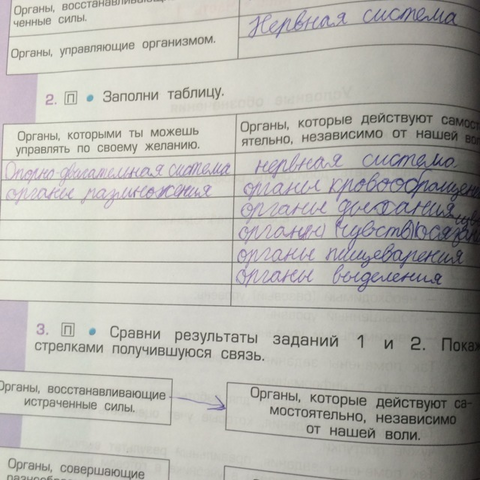 Органы, восстанавливаю
ченные силы.
Нервная система
Органы, управляющие организмом.
2. П • Заполни таблицу.
Органы, которыми ты можешь
управлять по своему желанию.
Органы, которые действуют самост
ятельно, независимо от нашей вол
Опорно-двигательная система
нервная система
органы размножения
органы кровообращени
органы дыхания
органы (чувств) осязан
органы пищеварения
органы выделения
3. П • Сравни результаты заданий 1 и 2. Покаж
стрелками получившуюся связь.
Органы, восстанавливающие
истраченные силы.
Органы, которые действуют са-
мостоятельно, независимо
от нашей воли.
Органы, совершающие